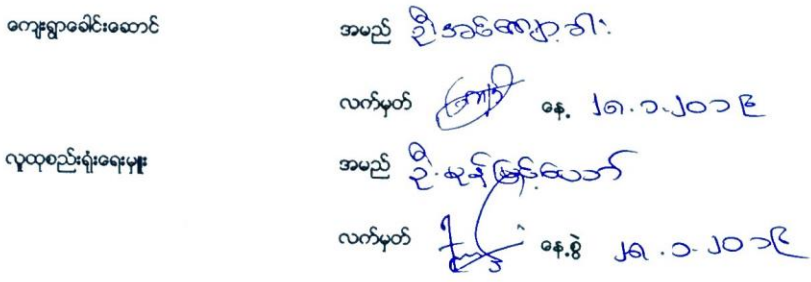 ကျေးရွာခေါင်းဆောင် အမည် ဦးအင်ကျော့ခါး
လက်မှတ် နေ့ ၂၈.၁.၂၀၁၆
လူထုစည်းရုံးရေးမှူး အမည် ဦးစုန်မြင့်ယော်
လက်မှတ် နေ့စွဲ ၂၈.၁.၂၀၁၆